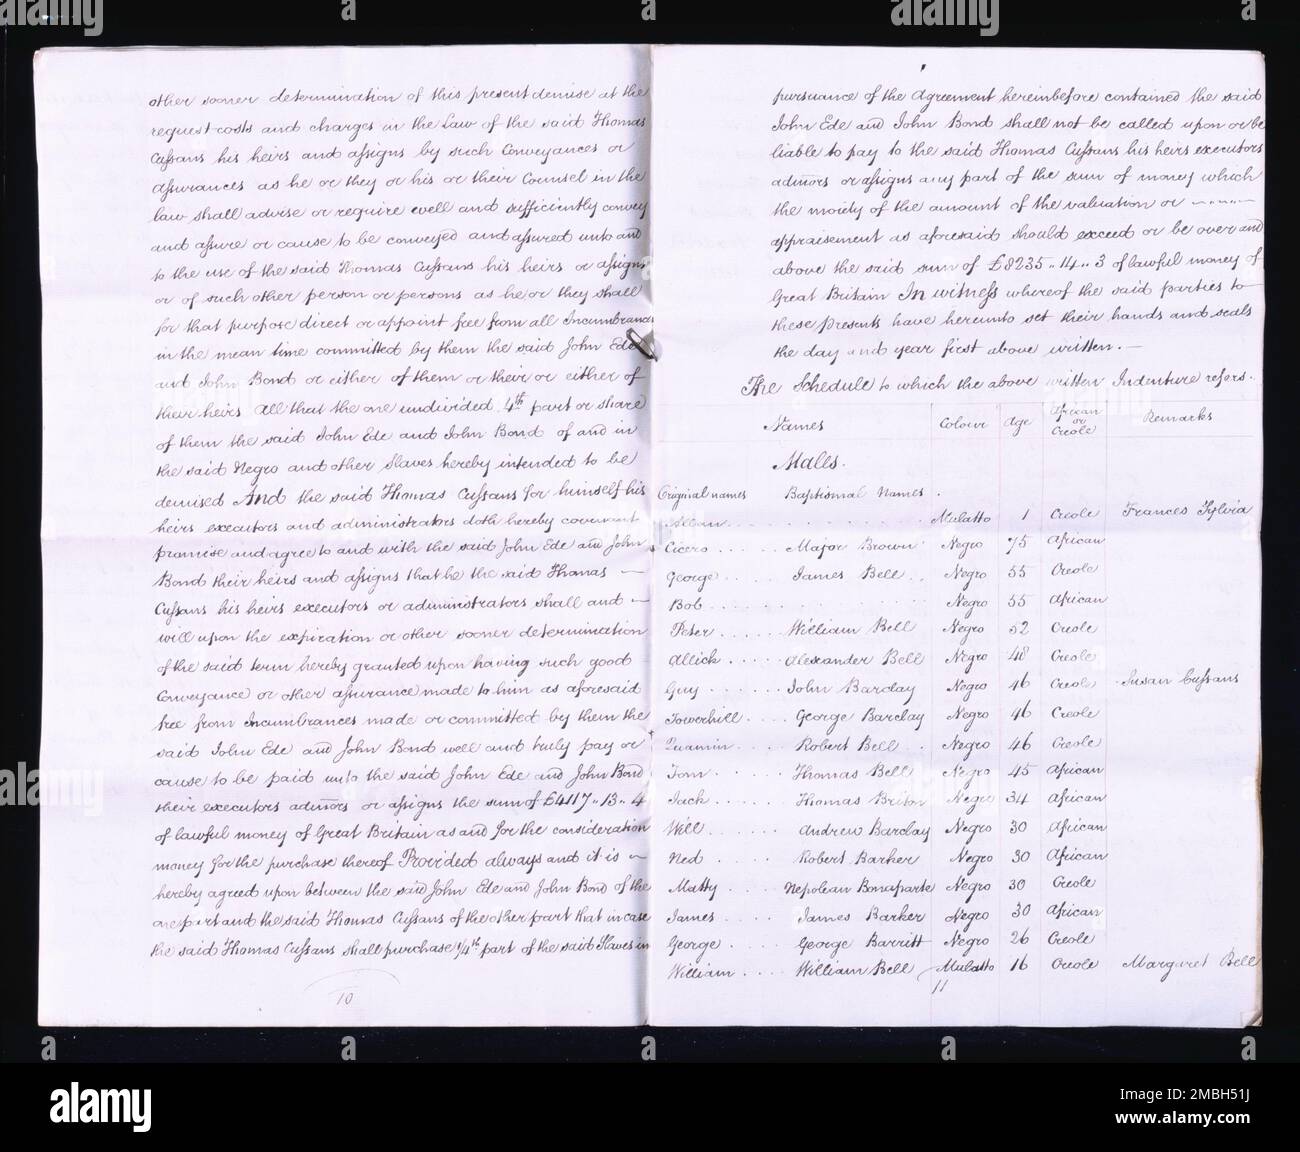 other sooner determination of this present demise at the
request costs and charges in the Law of the said Thomas
Cussans his heirs and assigns by such Conveyances or
Assurances as he or they or his or their Counsel in the
law shall advise or require well and sufficiently convey
and assure or cause to be conveyed and assured unto and
to the use of the said Thomas Cussans his heirs or assigns
or of such other person or persons as he or they shall
for that purpose direct or appoint free from all Incumbrances
in the mean time committed by them the said John Ede
and John Bond or either of them or their or either of
their heirs All that the one undivided 4th part or share
of them the said John Ede and John Bond of and in
the said Negro and other Slaves hereby intended to be
demised And the said Thomas Cussans for himself his
heirs executors and administrators doth hereby covenant
promise and agree to and with the said John Ede and John
Bond their heirs and assigns that he the said Thomas —
Cussans his heirs executors or administrators shall and —
will upon the expiration or other sooner determination
of the said term hereby granted upon having such good
Conveyance or other assurance made to him as aforesaid
free from Incumbrances made or committed by them the
said John Ede and John Bond well and truly pay or
cause to be paid unto the said John Ede and John Bond
their executors admors or assigns the sum of £4117..13..4
of lawful money of Great Britain as and for the consideration
money for the purchase thereof Provided always and it is —
hereby agreed upon between the said John Ede and John Bond of the
one part and the said Thomas Cussans of the other part that in case
the said Thomas Cussans shall purchase 1/4th part of the said Slaves in
10
pursuance of the Agreement hereinbefore contained the said
John Ede and John Bond shall not be called upon or be
liable to pay to the said Thomas Cussans his heirs executors
admors or assigns any part of the sum of money which
the moiety of the amount of the valuation or
appraisement as aforesaid should exceed or be over and
above the said sum of £8235..14..3 of lawful money of
Great Britain In witness whereof the said parties to
these Presents have hereunto set their hands and seals
the day and year first above written. —
The Schedule to which the above written Indenture refers.
Names Colour Age African or Creole Remarks
Males.
Original names Baptismal Names.
Alban Mulatto 1 Creole Frances Sylvia
Cicero Major Brown Negro 75 African
George James Bell Negro 55 Creole
Bob Negro 55 African
Peter William Bell Negro 52 Creole
Allick Alexander Bell Negro 48 Creole
Guy John Barclay Negro 46 Creole Susan Cussans
Towerhill George Barclay Negro 46 Creole
Quamin Robert Bell Negro 46 Creole
Tom Thomas Bell Negro 45 African
Jack Thomas Briton Negro 34 African
Will Andrew Barclay Negro 30 African
Ned Robert Barker Negro 30 African
Matty Nepolean Bonaparte Negro 30 Creole
James James Barker Negro 30 African
George George Barritt Negro 26 Creole
William William Bell Mulatto 16 Creole Margaret Bell
11
alamy
Image ID: 2MBH51J
www.alamy.com